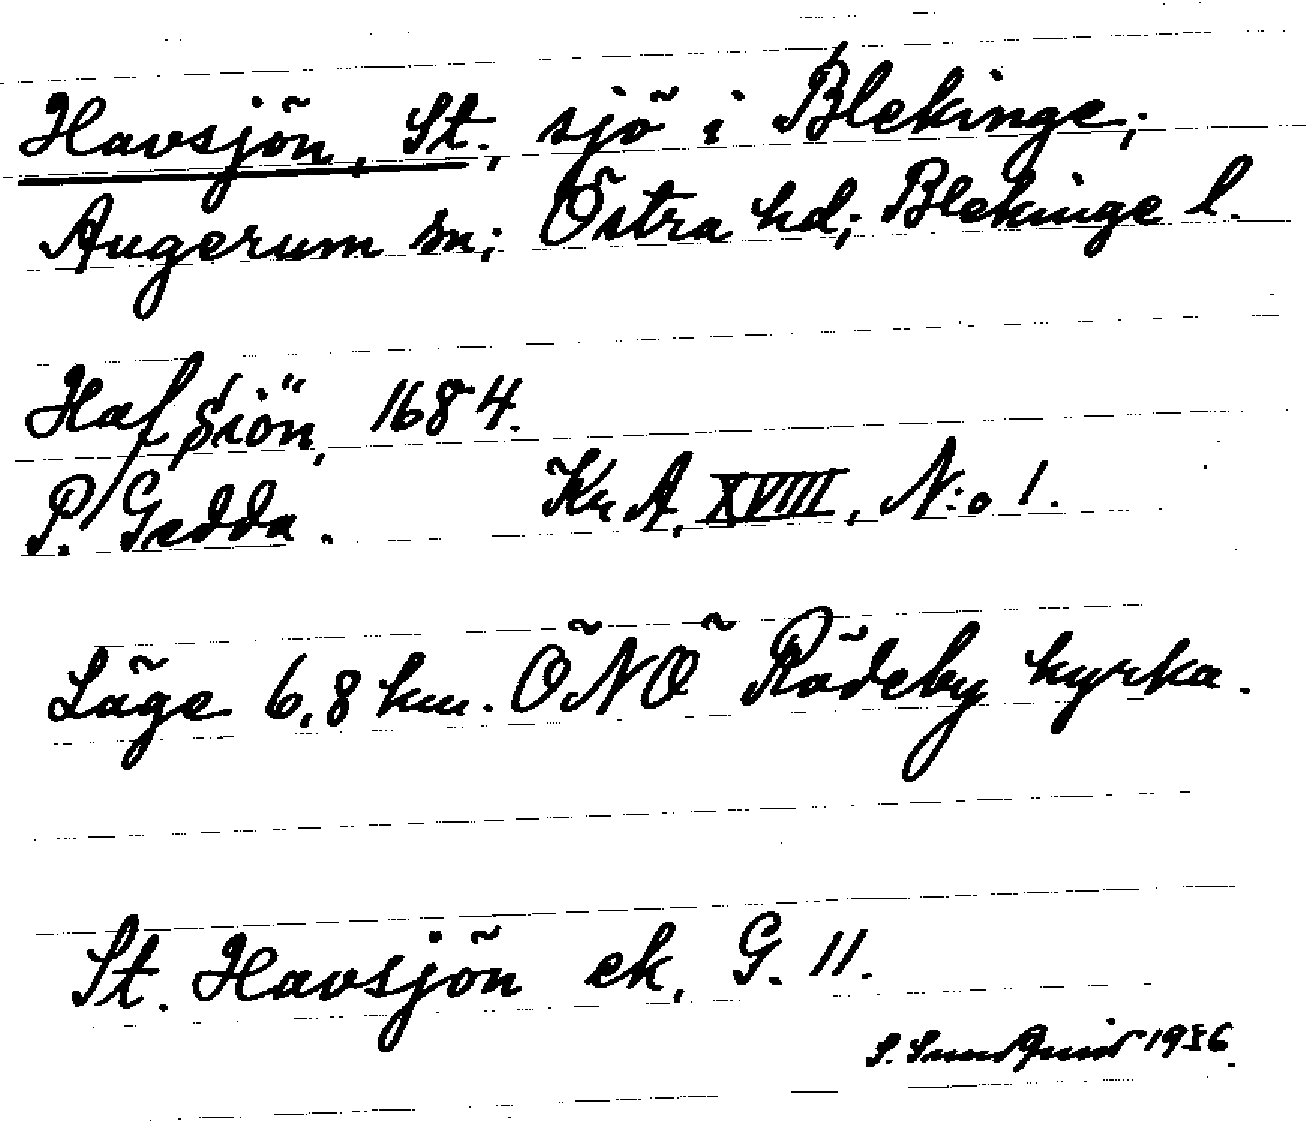 Havsjön, St., sjö i Blekinge;
Augerum sn; Östra hd; Blekinge l.
Hafsiön, 1684.
P. Gedda. Kr. A, XVIII, N:o 1.
Läge 6,8 km. ÖNÖ Rödeby kyrka.
St. Havsjön ek. G. 11.
S. Sundquist 1936.